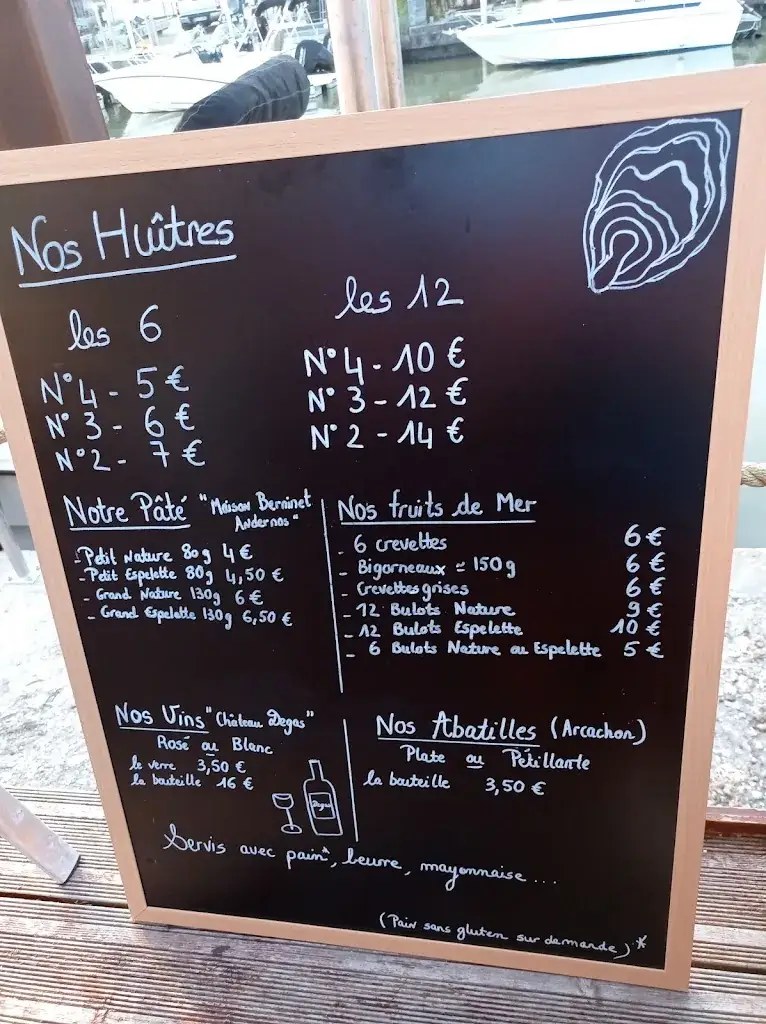 Nos Huîtres
les 6
N°4 - 5 €
N°3 - 6 €
N°2 - 7 €
les 12
N°4 - 10 €
N°3 - 12 €
N°2 - 14 €
Notre Pâté "Maison Berninet
Andernos"
- Petit Nature 80g 4 €
- Petit Espelette 80g 4,50 €
- Grand Nature 130g 6 €
- Grand Espelette 130g 6,50 €
Nos fruits de Mer
- 6 crevettes 6 €
- Bigorneaux ≃ 150g 6 €
- Crevettes grises 6 €
- 12 Bulots Nature 9 €
- 12 Bulots Espelette 10 €
- 6 Bulots Nature ou Espelette 5 €
Nos Vins "Château Degas"
Rosé ou Blanc
le verre 3,50 €
la bouteille 16 €
Degas
Nos Abatilles (Arcachon)
Plate ou Pétillante
la bouteille 3,50 €
Servis avec pain*, beurre, mayonnaise...
(Pain sans gluten sur demande)*